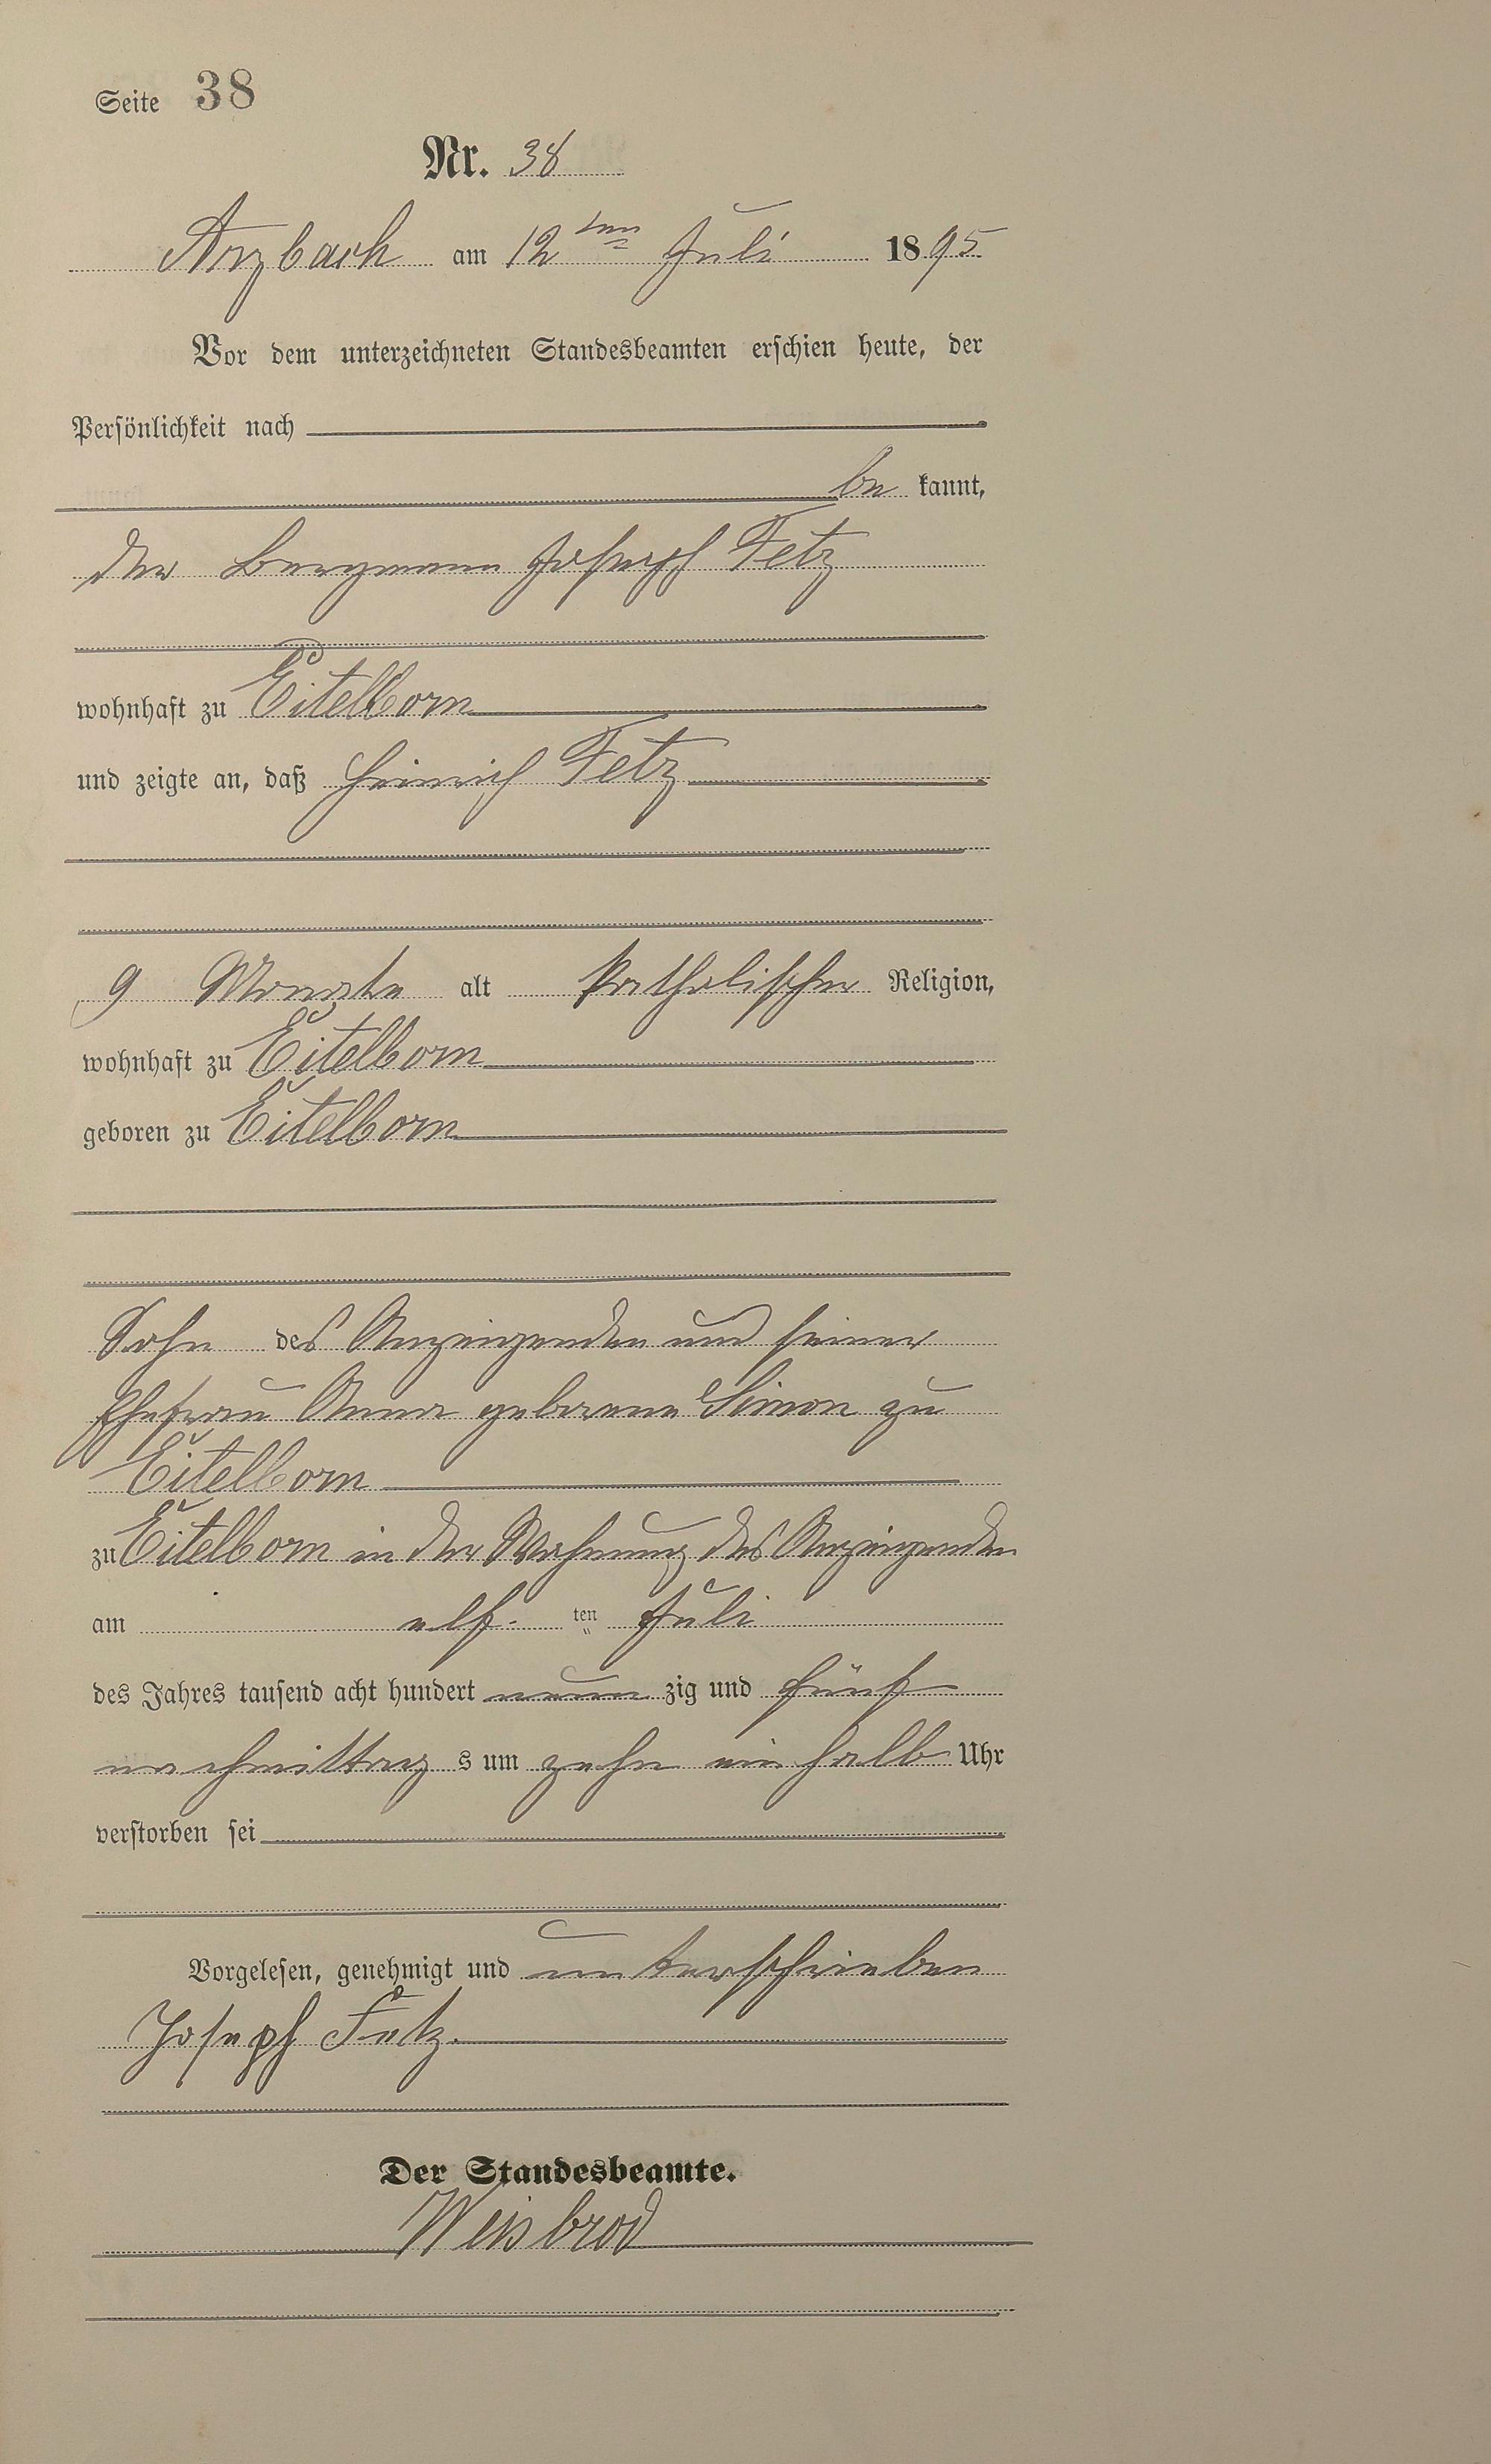 Seite 38
Nr. 38
Arzbach am 12ten Juli 1895
Vor dem unterzeichneten Standesbeamten erschien heute, der
Persönlichkeit nach
be kannt,
der Bergmann Joseph Fetz
wohnhaft zu Eitelborn
und zeigte an, daß Heinrich Fetz
9 Monate alt katholischer Religion,
wohnhaft zu Eitelborn
geboren zu Eitelborn
Sohn des Anzeigenden und seiner
Ehefrau Anna geborene Simon zu
Eitelborn
zu Eitelborn in der Wohnung des Anzeigenden
am elf- ten Juli
des Jahres tausend acht hundert neun zig und fünf
nachmittag s um zehn ein halb Uhr
verstorben sei
Vorgelesen, genehmigt und unterschrieben
Joseph Fetz.
Der Standesbeamte.
Weisbrod